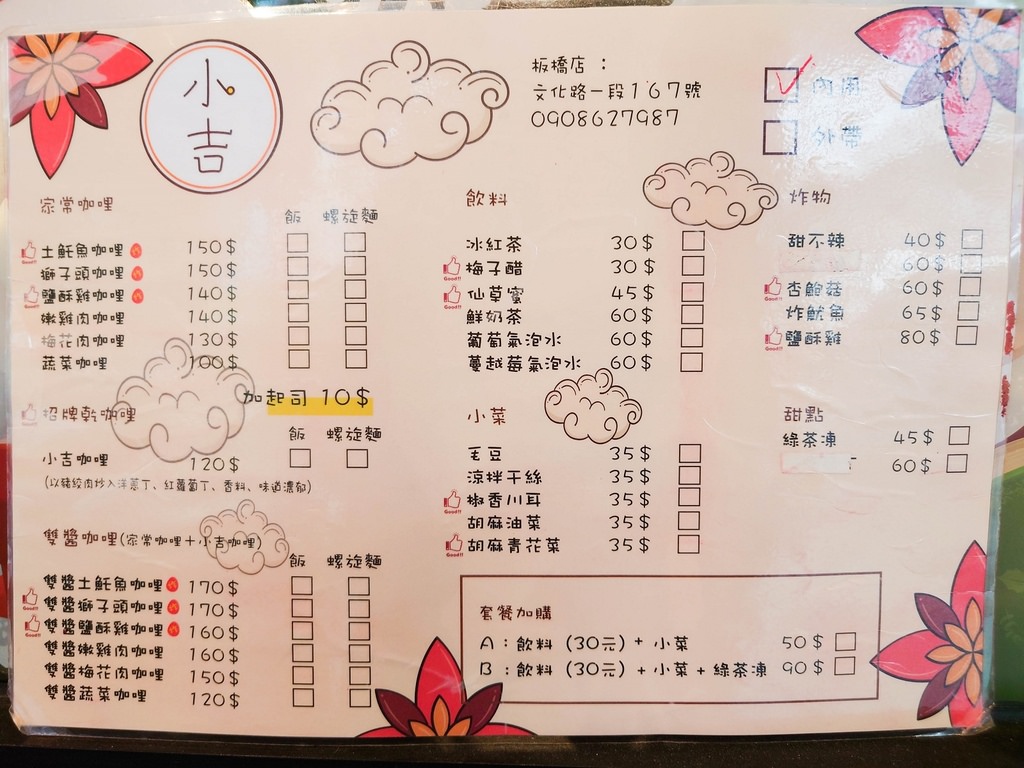 小吉
板橋店：
文化路一段167號
0908627987
內用
外帶
家常咖哩
飯 螺旋麵
土魠魚咖哩 150$
獅子頭咖哩 150$
鹽酥雞咖哩 140$
嫩雞肉咖哩 140$
梅花肉咖哩 130$
蔬菜咖哩 100$
加起司 10$
招牌乾咖哩
飯 螺旋麵
小吉咖哩 120$
(以豬絞肉炒入洋蔥丁、紅蘿蔔丁、香料、味道濃郁)
雙醬咖哩(家常咖哩+小吉咖哩)
飯 螺旋麵
雙醬土魠魚咖哩 170$
雙醬獅子頭咖哩 170$
雙醬鹽酥雞咖哩 160$
雙醬嫩雞肉咖哩 160$
雙醬梅花肉咖哩 150$
雙醬蔬菜咖哩 120$
飲料
冰紅茶 30$
梅子醋 30$
仙草蜜 45$
鮮奶茶 60$
葡萄氣泡水 60$
蔓越莓氣泡水 60$
小菜
毛豆 35$
涼拌干絲 35$
椒香川耳 35$
胡麻油菜 35$
胡麻青花菜 35$
炸物
甜不辣 40$
60$
杏鮑菇 60$
炸魷魚 65$
鹽酥雞 80$
甜點
綠茶凍 45$
60$
套餐加購
A：飲料 (30元) + 小菜 50$
B：飲料 (30元) + 小菜 + 綠茶凍 90$